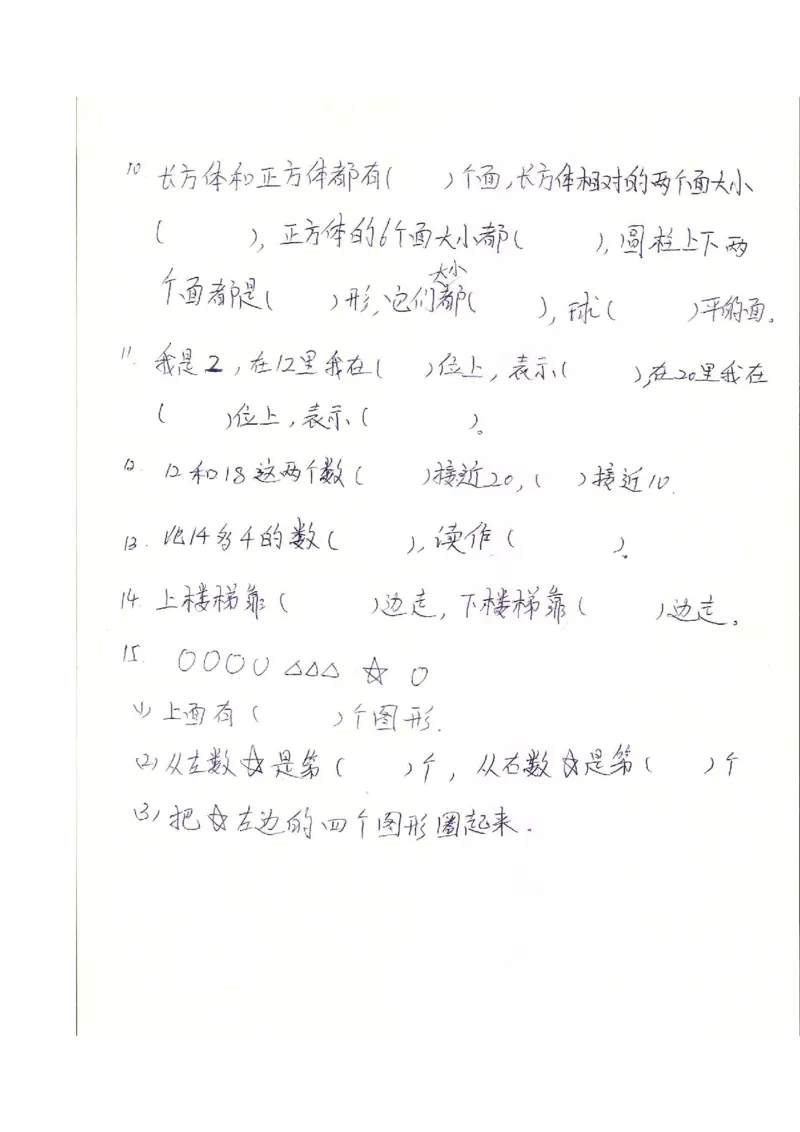 10. 长方体和正方体都有(    )个面,长方体相对的两个面大小
(    ),正方体的6个面大小都(    ),圆柱上下两
个面都是(    )形,它们大小都(    ),球(    )平的面。
11. 我是2,在12里我在(    )位上,表示(    ),在20里我在
(    )位上,表示(    )。
12. 12和18这两个数(    )接近20,(    )接近10.
13. 比14多4的数(    ),读作(    )。
14. 上楼梯靠(    )边走,下楼梯靠(    )边走。
15. ○○○○ △△△ ☆ ○
(1) 上面有(    )个图形.
(2) 从左数☆是第(    )个,从右数☆是第(    )个
(3) 把☆左边的四个图形圈起来.